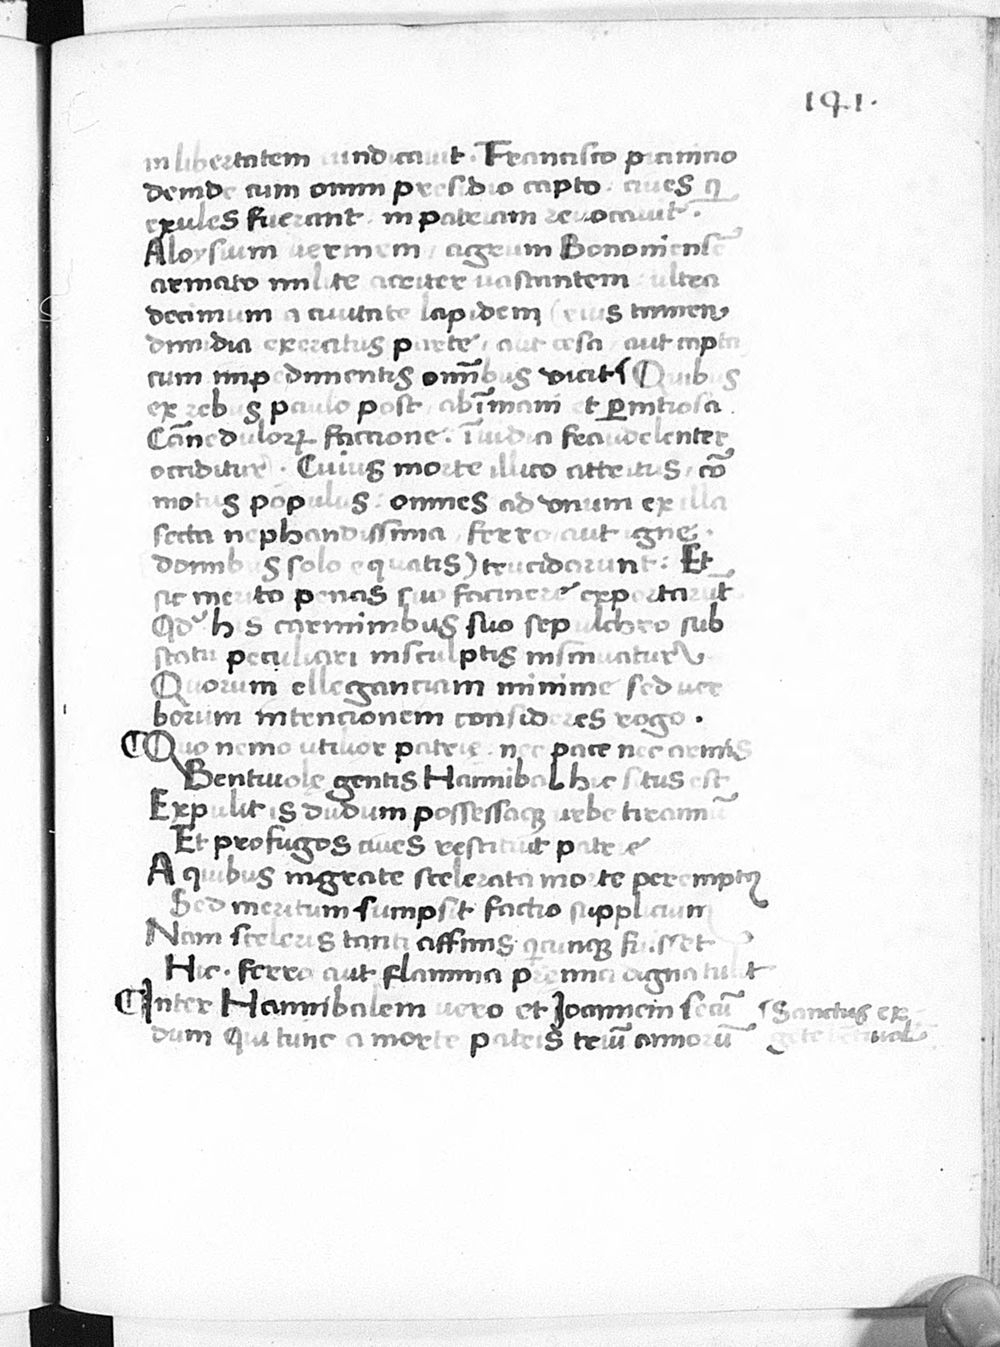 191.
in libertatem uindicauit. Francisco picinino
deinde cum omni presidio capto. ciues q̄
exules fuerant in patriam reuocauit.
Aloysium uermem / agrum Bononiensē
armato milite acriter uastantem ultra
decimum a ciuitate lapidem (eius tamen
dimidia exercitus parte / aut cesa / aut capta
cum impedimentis omībus vicit Quibus
ex rebus paulo post / ab īmani et ꝑnitiosa
Cānedulorꝝ factione. īuidia fraudelenter
occiditur. Cuius morte illico attritus / cō
motus populus: omnes ad vnum ex illa
secta nephandissima / ferro aut igne.
domibus solo equatis) trucidarunt: Et
sic merito penas suo facinere exportarūt
Qd' his carminibus suo sepulchro sub
statu peculiari insculptis insinuatur
Quorum ellegantiam minime sed uer
borum intencionem consideres rogo.
Quo nemo utilior patrie nec pace nec armis
Bentiuole gentis Hannibal hic situs est
Expulit is dudum possessaqꝫ urbe tirannū
Et profugos ciues restituit patrie
A quibus ingrate scelerata morte peremptꝰ
Sed meritum sumpsit factio supplicium
Nam sceleris tanti affinis qicunqꝫ fuisset
Hic. ferro aut flamma premia digna tulit
Inter Hannibalem uero et Joannem secū
dum qui tunc a morte patris triū annorū
Sanctus ex
gete bētiuol